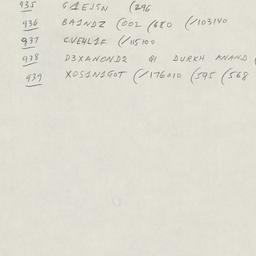 935 G1EJSN (296
936 BA1NDZ (002 (680 (/103140
937 CVEHL1F (/115100
938 D3XANOND2 91 DURKH ANAND (
939 XOS1N1GOT (/176010 (595 (568